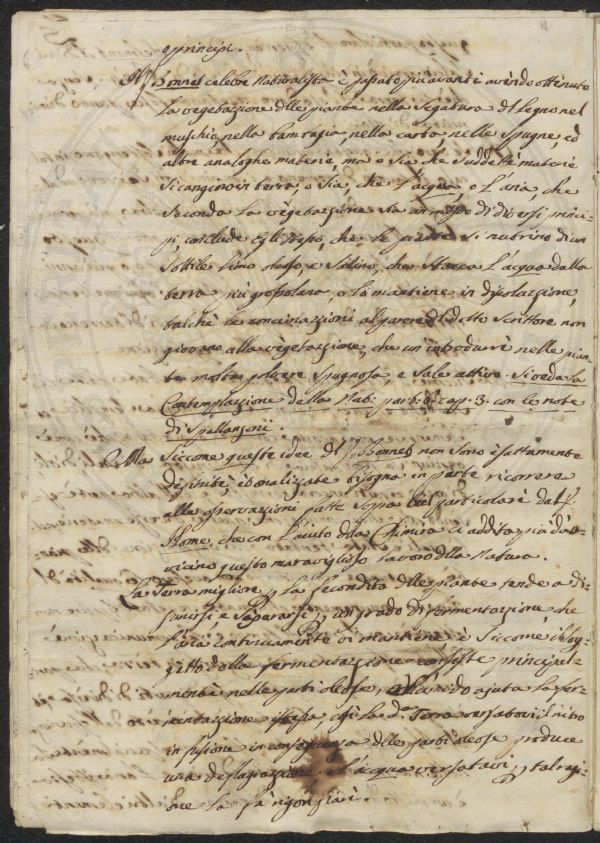 e principj.
Il Sr. Bonnet celebre Naturalista è passato più avanti avendo ottenuto
la vegetazione delle piante nella segatura di legno nel
muschio, nella bambagia, nella carta, nelle Spugne, ed
altre analoghe materie, ma o sia che suddette materie
si cangino in terra, o sia, che l'acqua, o l'aria, che
seconda la vegetazione sia un misto di diversi princi-
pj, conclude egli stesso, che le piante si nutrino d'un
sottile limo oleoso, e salino, che stacca l'acqua dalla
terra più grossolana, o lo mantiene in dissoluzione,
talchè le concimazioni al parere del detto Scrittore non
giovano alla vegetazione, che un introdurre nelle pian-
te molta polvere spugnosa, e sale attivo. Si veda la
Contemplazione della Nat: part: 6: cap. 3. con le note
di Spallanzoni.
Ma siccome queste idee del Sr. Bonnet non sono esattamente
definite, bisogna in parte ricorrere
alle osservazioni fatte sopra tal particolare dal Sr.
Home, che con l'aiuto della Chimica ci addita più da
vicino questo maraviglioso lavoro della Natura.
La Terra migliore per la fecondità delle piante tende a di-
sunirsi e separarsi per un grado di fermentazione, che
l'aria continuamente vi mantiene: e siccome il sog-
getto della fermentazione consiste principal-
mente nelle parti oleose, ajuta la fer-
mentazione istessa, così la da. Terra versatovi il nitro
in fusione in conseguenza delle parti oleose produce
una deflagrazione e l'acqua versatavi per tal ragi-
one la fà rigonfiare.